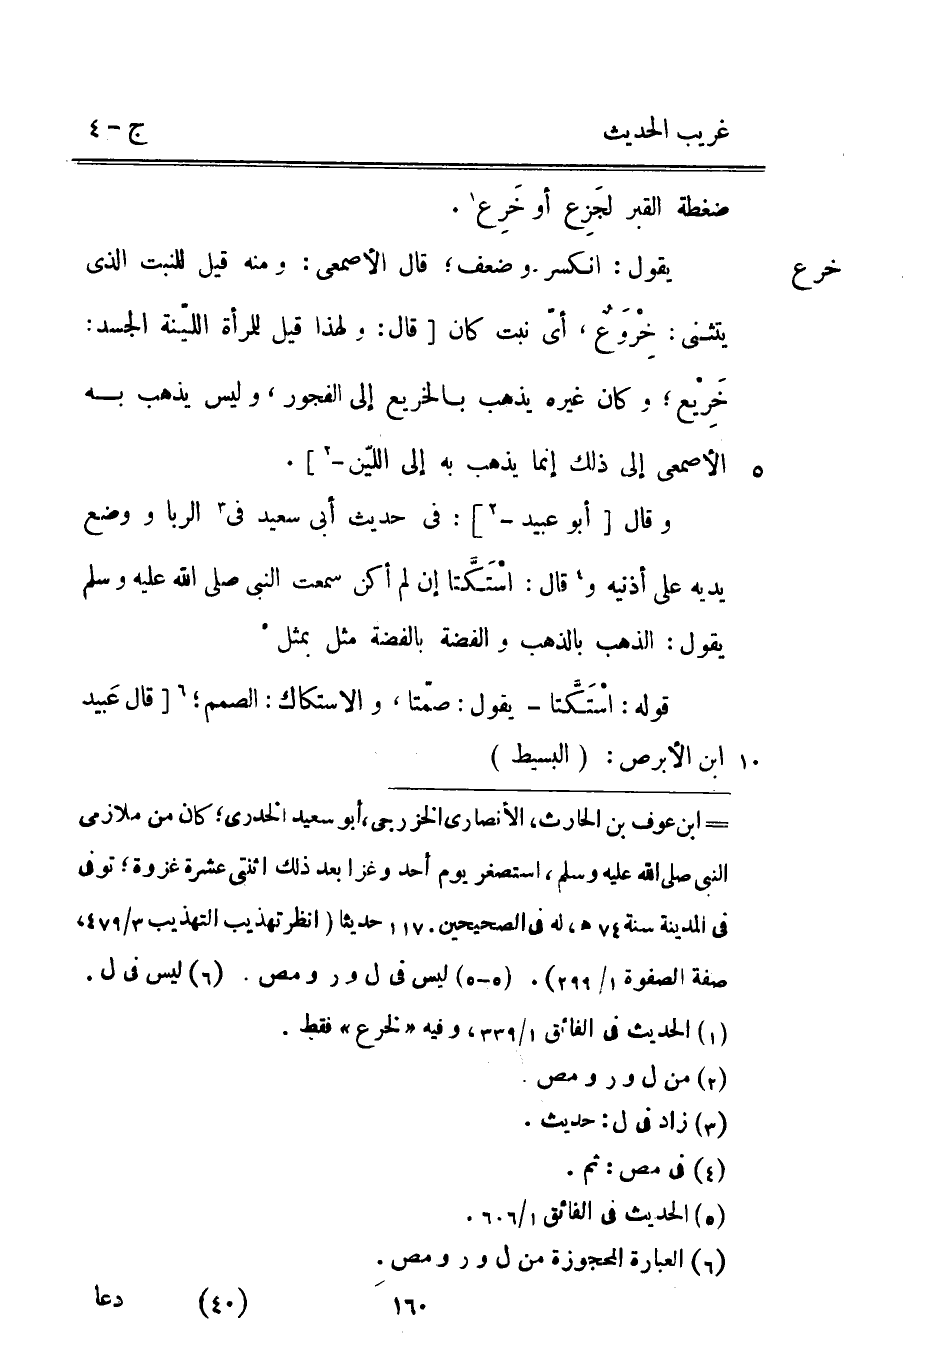 غريب الحديث ج - ٤
ضغطة القبر لجَزِع أو خَرِع١ .
خرع يقول : انكسر و ضعف ؛ قال الأصمعى : و منه قيل للنبت الذى
يتثنى : خِرْوَعٌ ، أىّ نبت كان [ قال : و لهذا قيل للمرأة الليّنة الجسد :
خَرِيْع ؛ و كان غيره يذهب بالخريع إلى الفجور ، و ليس يذهب به
٥ الأصمعى إلى ذلك إنما يذهب به إلى الليّن -٢ ] .
و قال [ أبو عبيد -٢ ] : فى حديث أبى سعيد فى٣ الربا و وضع
يديه على أذنيه و٤ قال : اسْتَكَّتا إن لم أكن سمعت النبى صلى الله عليه و سلم
يقول : الذهب بالذهب و الفضة بالفضة مثل بمثل٥
قوله : اسْتَكَّتا - يقول : صمّتا ، و الاستكاك : الصمم ؛ ٦[ قال عَبيد
١٠ ابن الأبرص : ( البسيط )
= ابن عوف بن الحارث، الأنصارى الخزرجى، أبو سعيد الخدرى؛ كان من ملازمى
النبى صلى الله عليه و سلم ، استصغر يوم أحد و غزا بعد ذلك اثنتى عشرة غزوة ؛ توفى
فى المدينة سنة ٧٤ ه ، له فى الصحيحين ١١٧٠ حديثا ( انظر تهذيب التهذيب ٤٧٩/٣،
صفة الصفوة ١/ ٢٩٩) . (٥-٥) ليس فى ل و ر و مص . (٦) ليس فى ل .
(١) الحديث فى الفائق ٣٣٩/١، و فيه « لخرع » فقط .
(٢) من ل و ر و مص .
(٣) زاد فى ل : حديث .
(٤) فى مص : ثم .
(٥) الحديث فى الفائق ٦٠٦/١ .
(٦) العبارة المحجوزة من ل و ر و مص .
١٦٠ (٤٠) دعا